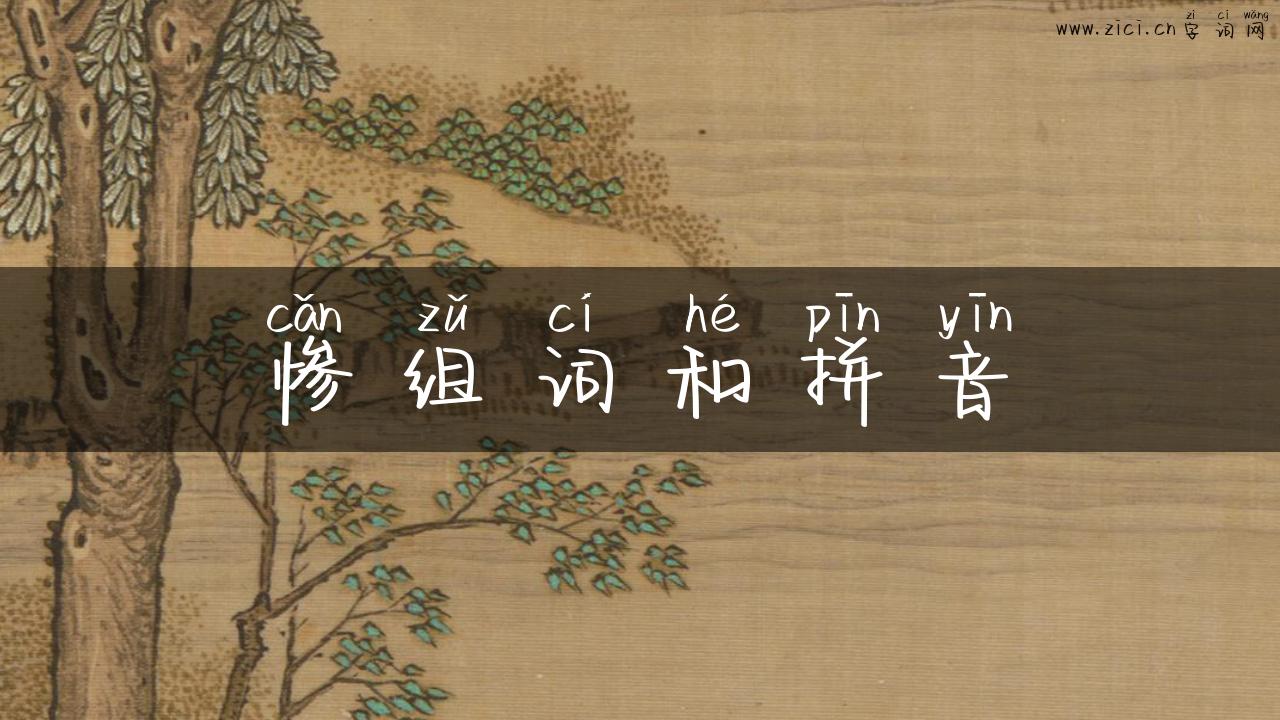 zì cí wǎng
www.zici.cn 字词网
cǎn zǔ cí hé pīn yīn
惨组词和拼音